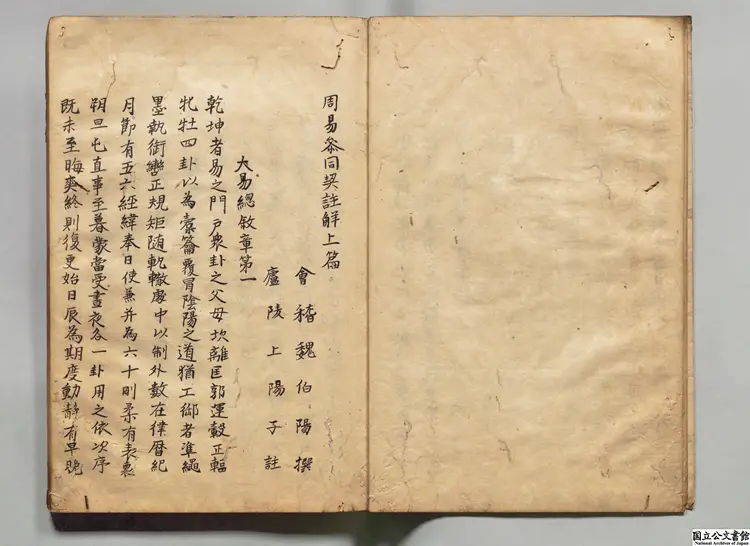 周易參同契註解上篇
會稽魏伯陽撰
廬陵上陽子註
大易總敘章第一
乾坤者易之門戶衆卦之父母坎離匡郭運轂正輻
牝牡四卦以為橐籥覆冒陰陽之道猶工御者準繩
墨執銜轡正規矩隨軌轍處中以制外數在律曆紀
月節有五六經緯奉日使兼并為六十剛柔有表裏
朔旦屯直事至暮蒙當受晝夜各一卦用之依次序
既未至晦爽終則復更始日辰為期度動靜有早晚
国立公文書館
National Archives of Japan